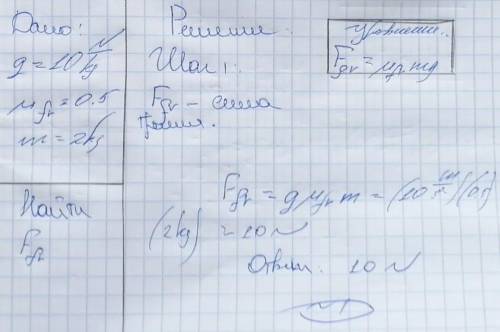 Дано:
g = 10 N/kg
μfr = 0.5
m = 2kg
Найти
Ffr
Решение:
Шаг 1:
Ffr – сила
трения.
Уравнения:
Ffr = μfr mg
Ffr = g μfr m = (10 m/s²)(0.5)
(2kg) = 10 N
Ответ: 10 N
№1